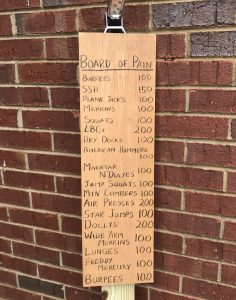 BOARD OF PAIN
BURPEES 100
SSH 150
PLANK JACKS 100
MERKINS 100
SQUATS 100
LBCs 200
DRY DOCKS 100
AMERICAN HAMMERS
100
MAKHTAR
N'DIAYES 100
JUMP SQUATS 100
MTN CLIMBERS 100
AIR PRESSES 200
STAR JUMPS 100
DOLLYS 200
WIDE ARM
MERKINS 100
LUNGES 100
FREDDY
MERCURY 100
BURPEES 100